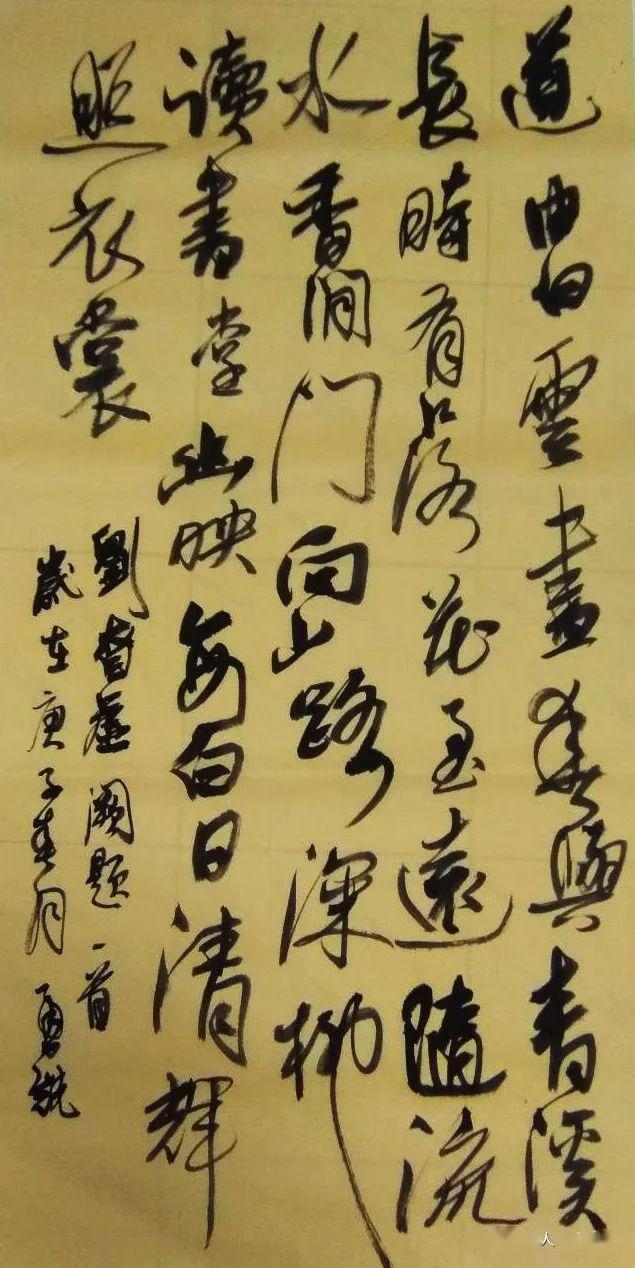 道由白雲盡春與青溪
長時有落花至遠隨流
水香閒门向山路深柳
讀書堂幽映每白日清輝
照衣裳
劉眘虛闕題一首
歲在庚子春月勇
人